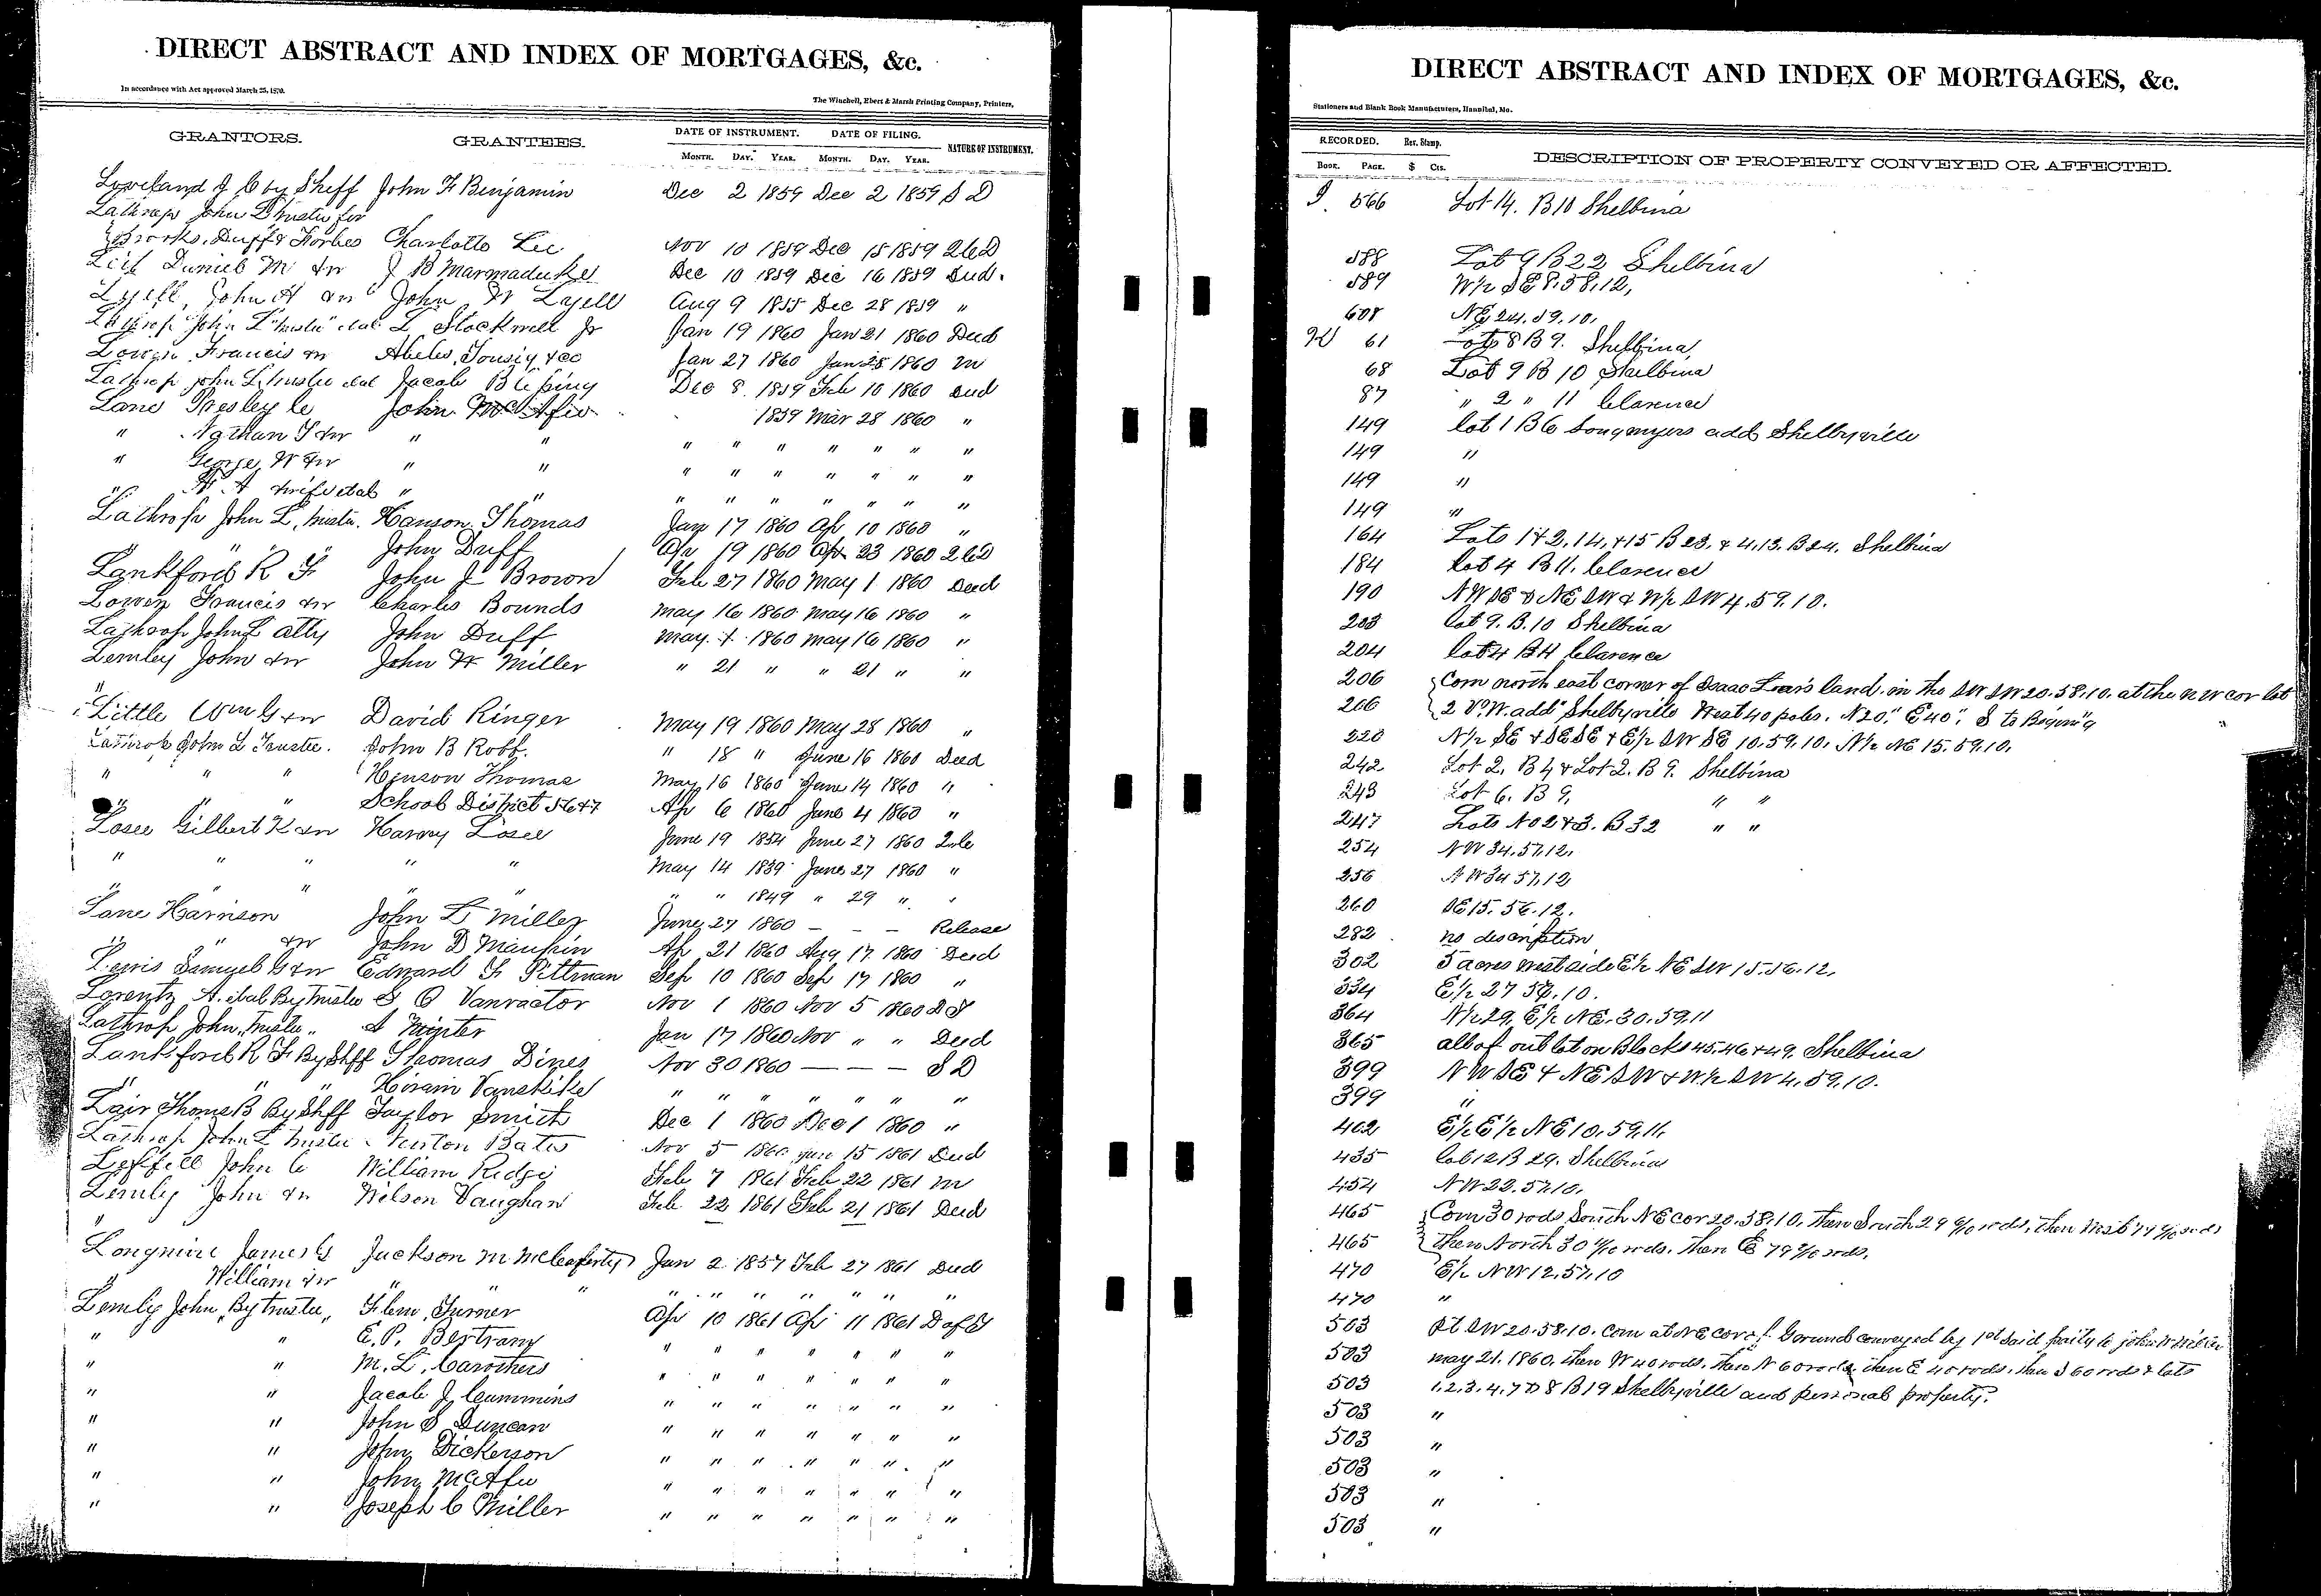 DIRECT ABSTRACT AND INDEX OF MORTGAGES, &c.
In accordance with Act approved March 25, 1870.
The Winchell, Ebert & Marsh Printing Company, Printers,
GRANTORS. GRANTEES. DATE OF INSTRUMENT. DATE OF FILING. NATURE OF INSTRUMENT.
MONTH. DAY. YEAR. MONTH. DAY. YEAR.
Loveland J C by Sheff John F Benjamin Dec 2 1859 Dec 2 1859 S D
Lathrop John L Trustee for
Brooks, Duff & Forbes Charlotte Lee Nov 10 1859 Dec 15 1859 2 C D
Daniel M & w J B Marmaduke Dec 10 1859 Dec 16 1859 Deed.
Lyell, John H & w John W Lyell Aug 9 1855 Dec 28 1859 "
Lathrop John L Trustee et al L Stockwell Jr Jan 19 1860 Jan 21 1860 Deed
Lowen Francis m Abeles, Tousig & co Jan 27 1860 Jan 28 1860 M
Lathrop John L Trustee et al Jacob Blessing Dec 8 1859 Feb 10 1860 Deed
Lane Presley C John McAfee 1859 Mar 28 1860 "
" Nathan T & w " " " " " " " " "
" George W & w " " " " " " " " "
" H A & wife et al " " " " " " " " "
Lathrop John L, Trustee. Hanson Thomas Jan 17 1860 Ap 10 1860 "
" " " John Duff Apr 19 1860 Apr 23 1860 2 C D
Lankford R F John J Brown Feb 27 1860 May 1 1860 Deed
Lowen Francis & w Charles Bounds May 16 1860 May 16 1860 "
Lathrop John L atty John Duff May 1 1860 May 16 1860 "
Lemley John & w John W Miller " 21 " " 21 " "
"
Little Wm G & w David Ringer May 19 1860 May 28 1860 "
Lathrop John L Trustee. John B Robb. " 18 " June 16 1860 Deed
" " " Hinson Thomas May 16 1860 June 14 1860 "
" " " School District 56 & 7 Ap 6 1860 June 4 1860 "
Losee Gilbert K & w Harvey Losee June 19 1854 June 27 1860 2. C
" " " " " May 14 1839 June 27 1860 "
" " " " " " 1849 " 29 " "
Lane Harrison John L Miller June 27 1860 — — — Release
" " & w John D Maupin Ap 21 1860 Aug 17 1860 Deed
Lewis Samuel G & w Edward F Pittman Sep 10 1860 Sep 17 1860 "
Lorentz A. et al By Trustee S O Vanvactor Nov 1 1860 Nov 5 1860 D T
Lathrop John, Trustee " A Minter Jan 17 1860 Nov " " Deed
Lankford R F By Shff Thomas Dines Nov 30 1860 — — — S D
" " " Hiram Vanskike " " " " " " "
Lair Thomas B By Shff Taylor Smith Dec 1 1860 Dec 1 1860 "
Lathrop John L Trustee Newton Bates Nov 5 1860 Jan 15 1861 Deed
Leffell John C William Ridge Feb 7 1861 Feb 22 1861 M
Lemly John & w Wilson Vaughan Feb 22 1861 Feb 21 1861 Deed
"
Longmire James G Jackson M McCleaferty Jan 2 1857 Feb 27 1861 Deed
" William & w " " " " " " " " "
Lemly John, By Trustee, Flem Turner Apr 10 1861 Apr 11 1861 D of T
" " E. P. Bertrany " " " " " " "
" " M. L. Carothers " " " " " " "
" " Jacob J Cummins " " " " " " "
" " John S Duncan " " " " " " "
" " John Dickerson " " " " " " "
" " John McAfee " " " " " " "
" " Joseph C Miller " " " " " " "
DIRECT ABSTRACT AND INDEX OF MORTGAGES, &c.
Stationers and Blank Book Manufacturers, Hannibal, Mo.
RECORDED. Rev. Stamp. DESCRIPTION OF PROPERTY CONVEYED OR AFFECTED.
BOOK. PAGE. $ Cts.
566 Lot 14. B 10 Shelbina
588 Lot 9 B 22 Shelbina
589 W/2 SE 8.58.12,
608 NE 24.59.10.
61 Lot 8 B 9. Shelbina
68 Lot 9 B 10 Shelbina
87 " 2 " 11 Clarence
149 Lot 1 B 6 Longmyers add Shelbyville
149 "
149 "
149 "
164 Lots 1 & 2, 14, & 15 B 23. & 4.13. B 24. Shelbina
184 Lot 4 B 11. Clarence
190 NW SE & NE SW & W/2 SW 4.59.10.
203 Lot 9. B. 10 Shelbina
204 Lot 4 B 11 Clarence
206 Com north east corner of Isaac Lear's land in the SW SW 20.58.10. at the NW cor lot
206 2 V. W. add Shelbyville West 40 poles. N 20" E 40" S to Begining
220 N/2 SE & SE SE & E/2 SW SE 10.59.10. N/2 NE 15.59.10.
242 Lot 2. B 4 & Lot 2. B 9. Shelbina
243 Lot 6. B 9, " "
247 Lots No 2 & 3. B 32 " "
254 NW 34.57.12.
256 NW 34 57.12
260 SE 15. 56.12.
282 no description
302 5 acres west side E/2 NE SW 15.56.12,
334 E/2 27 56.10.
364 N/2 29. E/2 NE. 30.59.11
365 all of out lot on Blocks 45.46 & 49. Shelbina
399 NW SE & NE SW & W/2 SW 4.59.10.
399 "
402 E/2 E/2 NE 10.59.11,
435 Lot 12 B 29. Shelbina
454 NW 22.57.10.
465 Com 30 rods South NE cor 20.58.10. then South 29 rods, then West 79 rods
465 then North 30 rods. then E 79 rods.
470 E/2 NW 12.57.10
470 "
503 Pt SW 20.58.10. Com at NE cor of Ground conveyed by 1st said party to John W Miller
503 may 21. 1860. then W 40 rods. then N 60 rods. then E 40 rods. then S 60 rods & lots
503 1.2.3.4.7 & 8 B 19 Shelbyville and personal property.
503 "
503 "
503 "
503 "
503 "